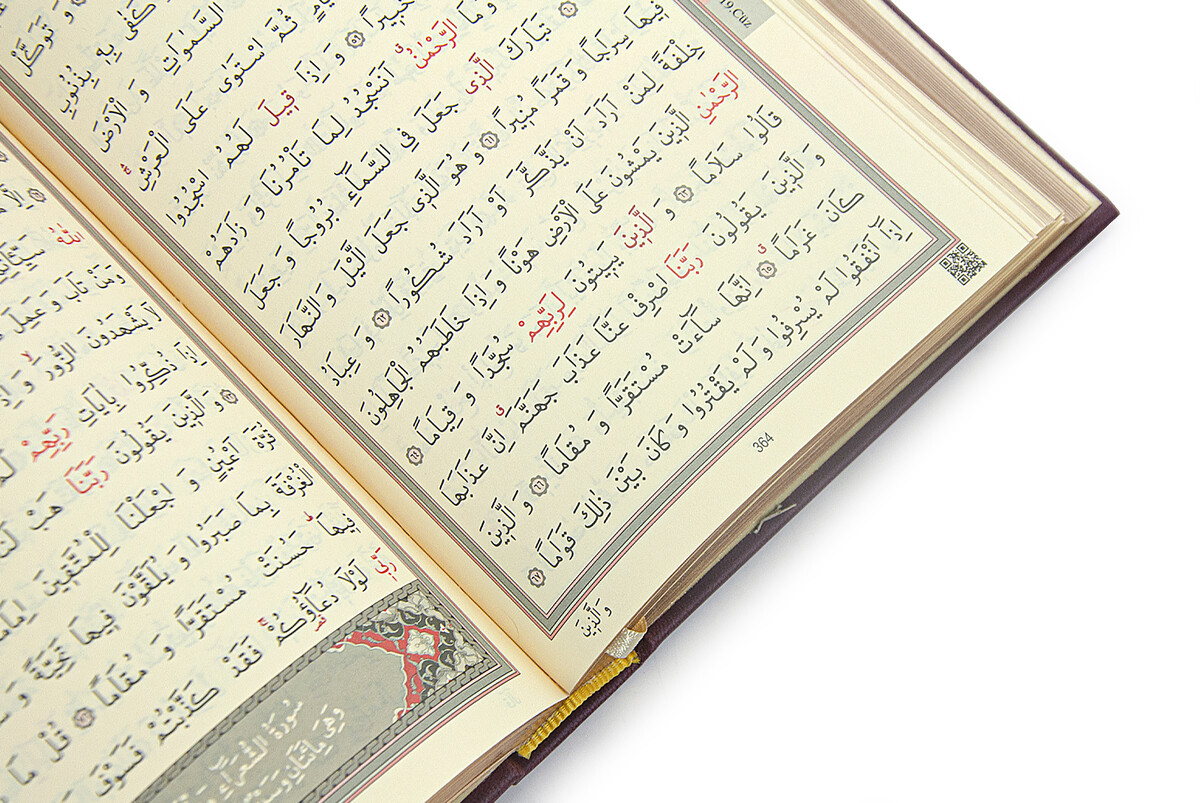 19.Cüz
وَ تَوَكَّلْ
كَفٰى بِهِ بِذُنُوبِ
السَّمٰوَاتِ وَ الْاَرْضَ
ثُمَّ اسْتَوٰى عَلَى الْعَرْشِ
خَبِيرًا ٥٩ وَ اِذَا قِيلَ لَهُمُ اسْجُدُوا
وَ مَا الرَّحْمٰنُ اَنَسْجُدُ لِمَا تَأْمُرُنَا وَ زَادَهُمْ
٦٠ تَبَارَكَ الَّذِي جَعَلَ فِي السَّمَاءِ بُرُوجًا وَ جَعَلَ
فِيهَا سِرَاجًا وَ قَمَرًا مُنِيرًا ٦١ وَ هُوَ الَّذِي جَعَلَ الَّيْلَ وَ النَّهَارَ
خِلْفَةً لِمَنْ اَرَادَ اَنْ يَذَّكَّرَ اَوْ اَرَادَ شُكُورًا ٦٢ وَ عِبَادُ
الرَّحْمٰنِ الَّذِينَ يَمْشُونَ عَلَى الْاَرْضِ هَوْنًا وَ اِذَا خَاطَبَهُمُ الْجَاهِلُونَ
قَالُوا سَلَامًا ٦٣ وَ الَّذِينَ يَبِيتُونَ لِرَبِّهِمْ سُجَّدًا وَ قِيَامًا ٦٤
وَ الَّذِينَ يَقُولُونَ رَبَّنَا اصْرِفْ عَنَّا عَذَابَ جَهَنَّمَ اِنَّ عَذَابَهَا
كَانَ غَرَامًا ٦٥ اِنَّهَا سَاءَتْ مُسْتَقَرًّا وَ مُقَامًا ٦٦ وَ الَّذِينَ
اِذَا اَنْفَقُوا لَمْ يُسْرِفُوا وَ لَمْ يَقْتُرُوا وَ كَانَ بَيْنَ ذٰلِكَ قَوَامًا ٦٧
وَ الَّذِينَ
364
اِلَّا
اللّٰهُ
وَمَنْ تَابَ وَ عَمِلَ
لَا يَشْهَدُونَ الزُّورَ
اِذَا ذُكِّرُوا بِاٰيَاتِ رَبِّهِمْ
وَ الَّذِينَ يَقُولُونَ رَبَّنَا هَبْ
قُرَّةَ اَعْيُنٍ وَ اجْعَلْنَا لِلْمُتَّقِينَ
الْغُرْفَةَ بِمَا صَبَرُوا وَ يُلَقَّوْنَ فِيهَا تَحِيَّةً وَ
فِيهَا حَسُنَتْ مُسْتَقَرًّا وَ مُقَامًا ٧٦ قُلْ مَا
رَبِّي لَوْلَا دُعَاؤُكُمْ فَقَدْ كَذَّبْتُمْ فَسَوْفَ
سُورَةُ الشُّعَرَاءِ
وَهِيَ مِائَتَانِ